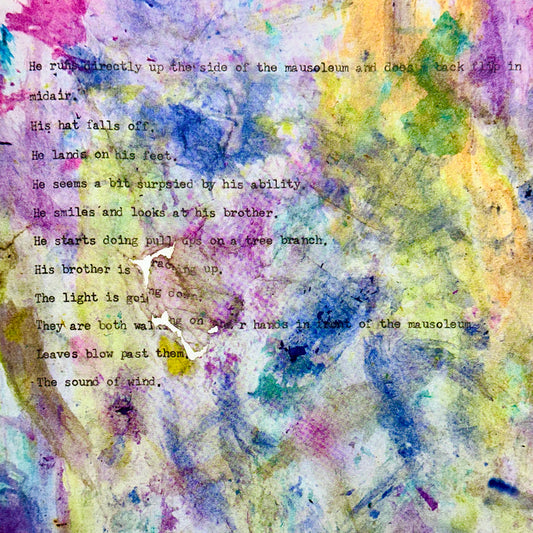 He runs directly up the side of the mausoleum and does a back flip in
midair.
His hat falls off.
He lands on his feet.
He seems a bit surpsied by his ability.
He smiles and looks at his brother.
He starts doing pull ups on a tree branch.
His brother is cracking up.
The light is going down.
They are both walking on their hands in front of the mausoleum.
Leaves blow past them.
The sound of wind.